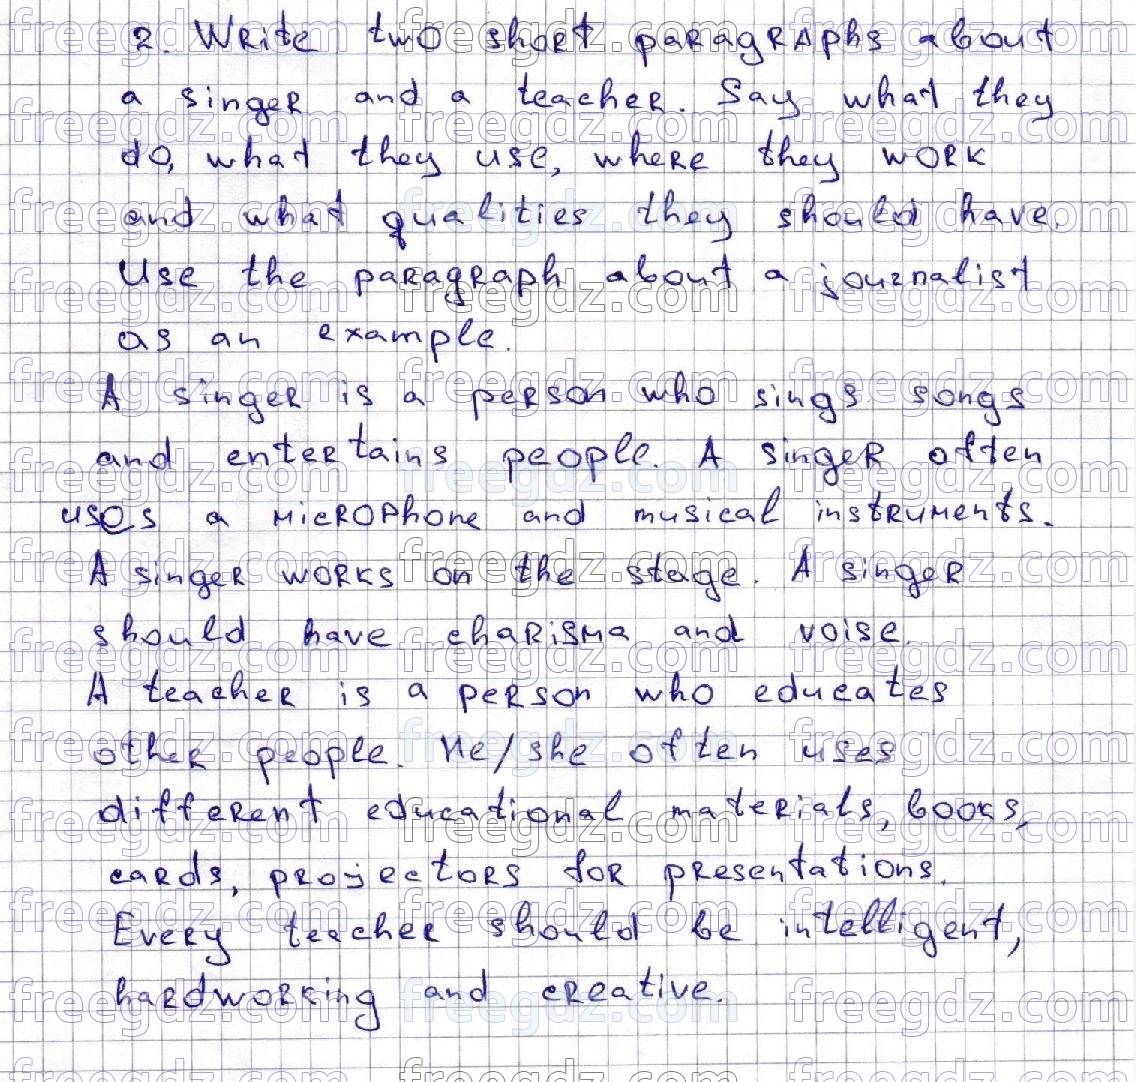 2. Write two short paragraphs about
a singer and a teacher. Say what they
do, what they use, where they work
and what qualities they should have.
Use the paragraph about a journalist
as an example.
A singer is a person who sings songs
and entertains people. A singer often
uses a microphone and musical instruments.
A singer works on the stage. A singer
should have charisma and voise.
A teacher is a person who educates
other people. He/she often uses
different educational materials, books,
cards, projectors for presentations.
Every teacher should be intelligent,
hardworking and creative.
freegdz.com